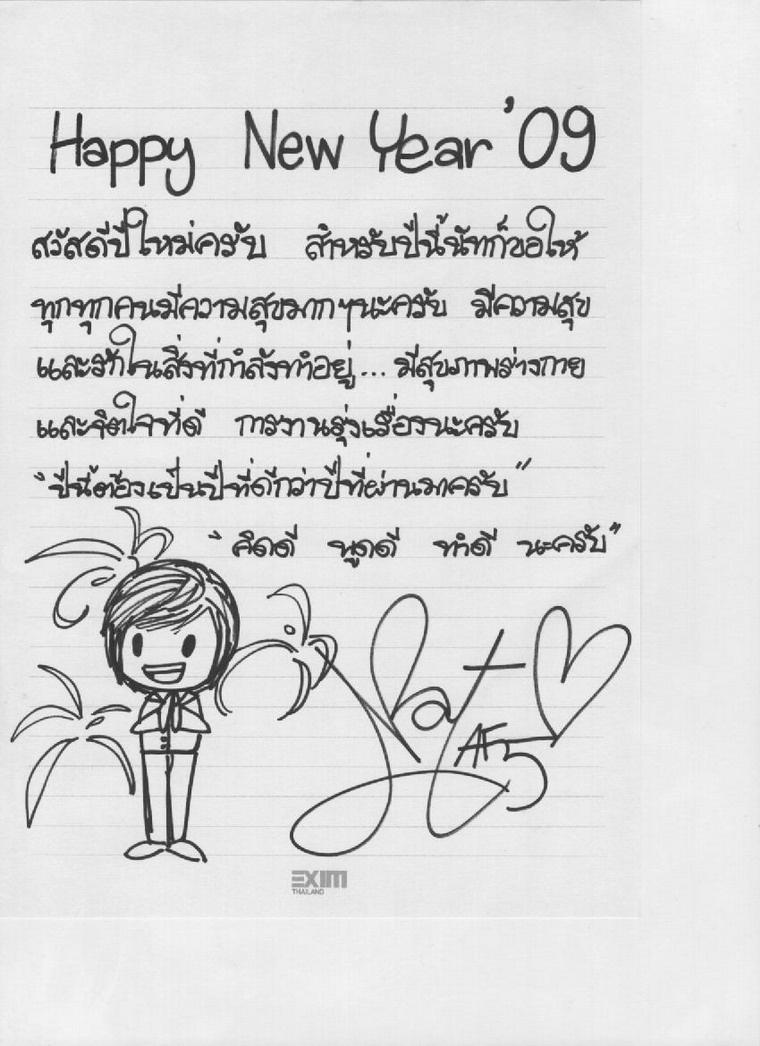 Happy New Year '09
สวัสดีปีใหม่ครับ สำหรับปีนี้นัทก็ขอให้
ทุกทุกคนมีความสุขมากๆนะครับ มีความสุข
และรักในสิ่งที่กำลังทำอยู่... มีสุขภาพร่างกาย
และจิตใจที่ดี การงานรุ่งเรื่องนะครับ
"ปีนี้ต้องเป็นปีที่ดีกว่าปีที่ผ่านมาครับ"
"คิดดี พูดดี ทำดี นะครับ"
Nat
AF5
EXIM
THAILAND